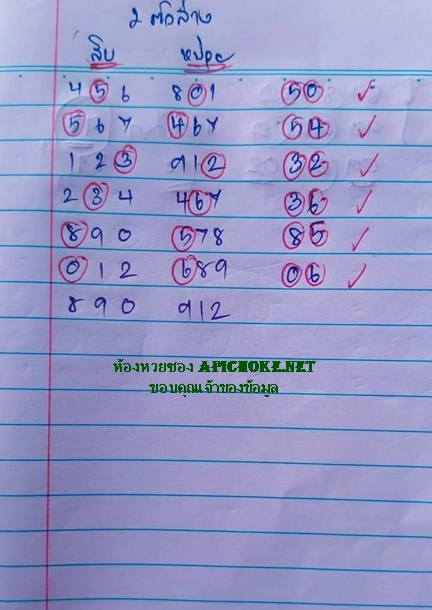 2 ตัวล่าง
สิบ หน่วย
4 5 6 8 0 1 50 ✓
5 6 7 4 6 7 54 ✓
1 2 3 9 1 2 32 ✓
2 3 4 4 6 7 36 ✓
8 9 0 5 7 8 85 ✓
0 1 2 6 8 9 06 ✓
8 9 0 9 1 2
ห้องหวยซอง APICHOKE.NET
ขอบคุณเจ้าของข้อมูล